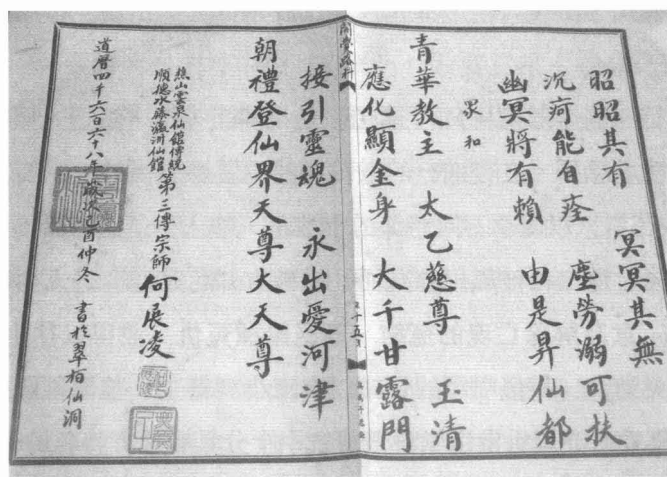 昭昭其有　冥冥其無
沉疴能自痊　塵勞溺可扶
幽冥將有賴　由是昇仙都
眾和
青華教主　太乙慈尊　玉清
應化顯金身　大千甘露門
接引靈魂　永出愛河津
朝禮登仙界天尊大天尊
雲泉仙館傳統
順德水藤瀛洲仙館
第三傳宗師何展凌
道曆四千六百六十八年歲次己酉仲冬　書於翠柏仙洞